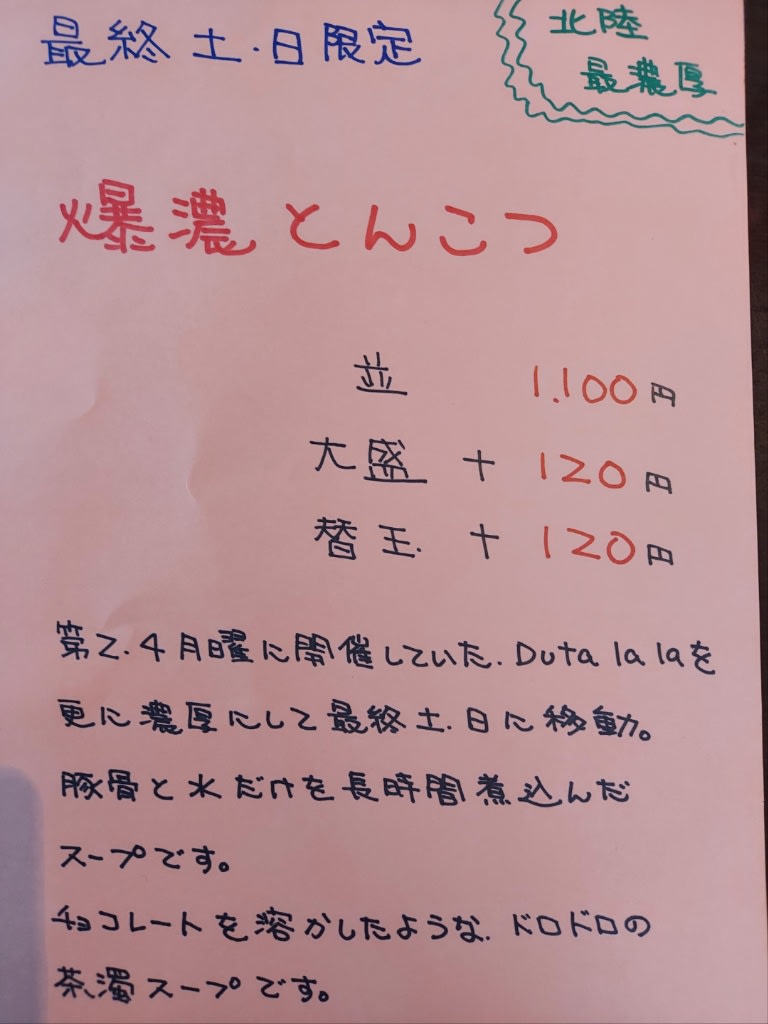 最終土・日限定
北陸
最濃厚
爆濃とんこつ
並 1,100円
大盛 + 120円
替玉 + 120円
第2.4月曜に開催していた、Duta la laを
更に濃厚にして最終土.日に移動。
豚骨と水だけを長時間煮込んだ
スープです。
チョコレートを溶かしたような、ドロドロの
茶濁スープです。